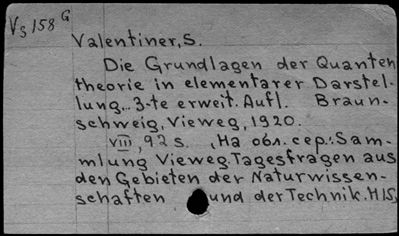 Vs 158 G
Valentiner, S.
Die Grundlagen der Quanten
theorie in elementarer Darstel-
lung... 3-te erweit. Aufl. Braun-
schweig, Vieweg, 1920.
VIII, 92 s. (На обл. сер.: Sam-
mlung Vieweg. Tagesfragen aus
den Gebieten der Naturwissen-
schaften und der Technik. H15)